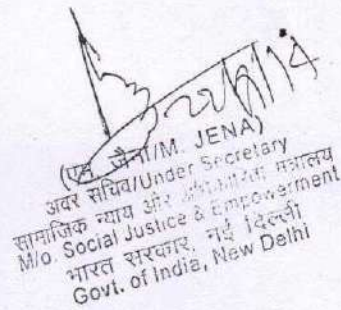 22/8/14
(एम. जेना/M. JENA)
अवर सचिव/Under Secretary
सामाजिक न्याय और अधिकारिता मंत्रालय
M/o. Social Justice & Empowerment
भारत सरकार, नई दिल्ली
Govt. of India, New Delhi